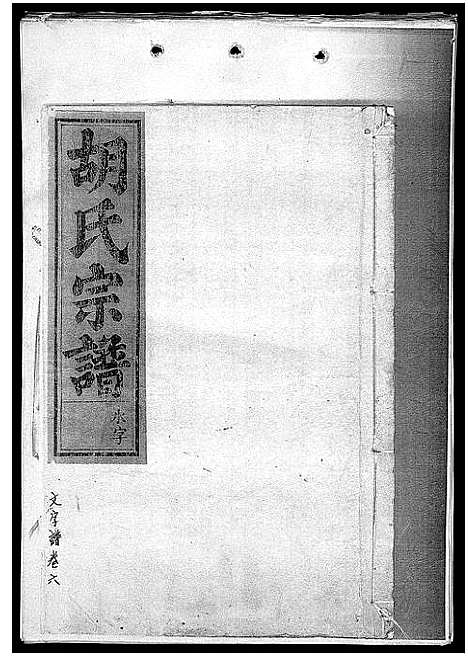 胡氏宗譜
水字
文字譜卷六